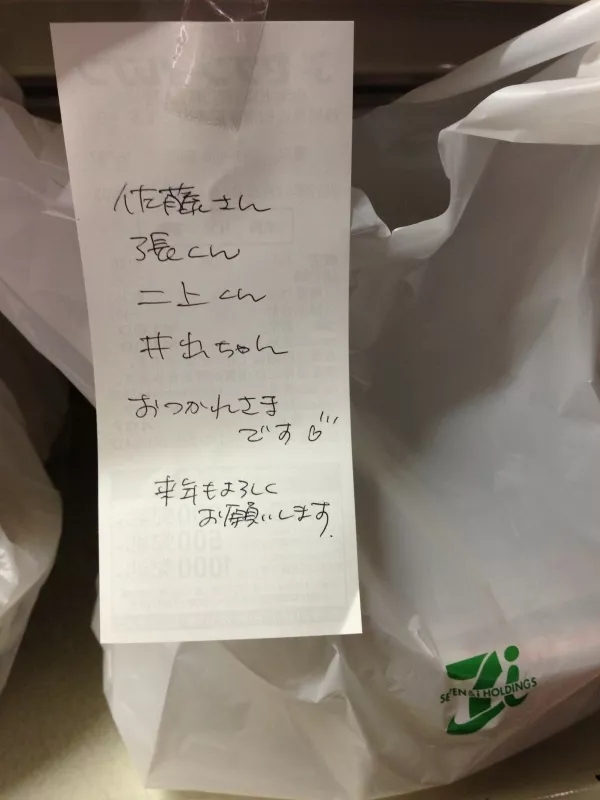 佐藤さん
張くん
二上くん
井出ちゃん
おつかれさま
です
来年もよろしく
お願いします.
SEVEN & i HOLDINGS